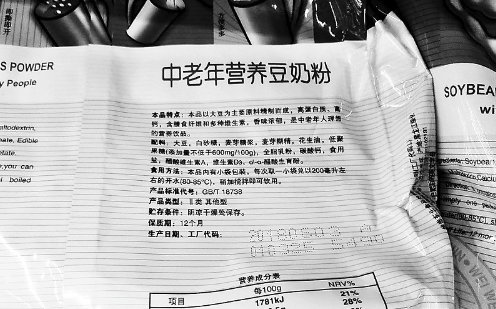 中老年营养豆奶粉
本品特点：本品以大豆为主要原料精制而成，高蛋白质、高
钙，含膳食纤维和多种维生素，香味浓郁，是中老年人理想
的营养饮品。
配料：大豆、白砂糖、麦芽糖浆、麦芽糊精、花生油、低聚
果糖(添加量不低于600mg/100g)、全脂乳粉、碳酸钙、食用
盐、醋酸维生素A、维生素D3、dl-α-醋酸生育酚。
食用方法：本品内有小袋包装，每次取一小袋兑以200毫升左
右的开水(80-85℃)，稍加搅拌即可饮用。
产品标准代号：GB/T 18738
产品类型：Ⅱ类 其他型
贮存条件：阴凉干燥处保存。
保质期：12个月
生产日期、工厂代码：
营养成分表
项目 每100g NRV%
1781kJ 21%
28%
S POWDER
y People
altodextrin,
ate, Edible
etate.
you can
boiled
SOYBEA
wi